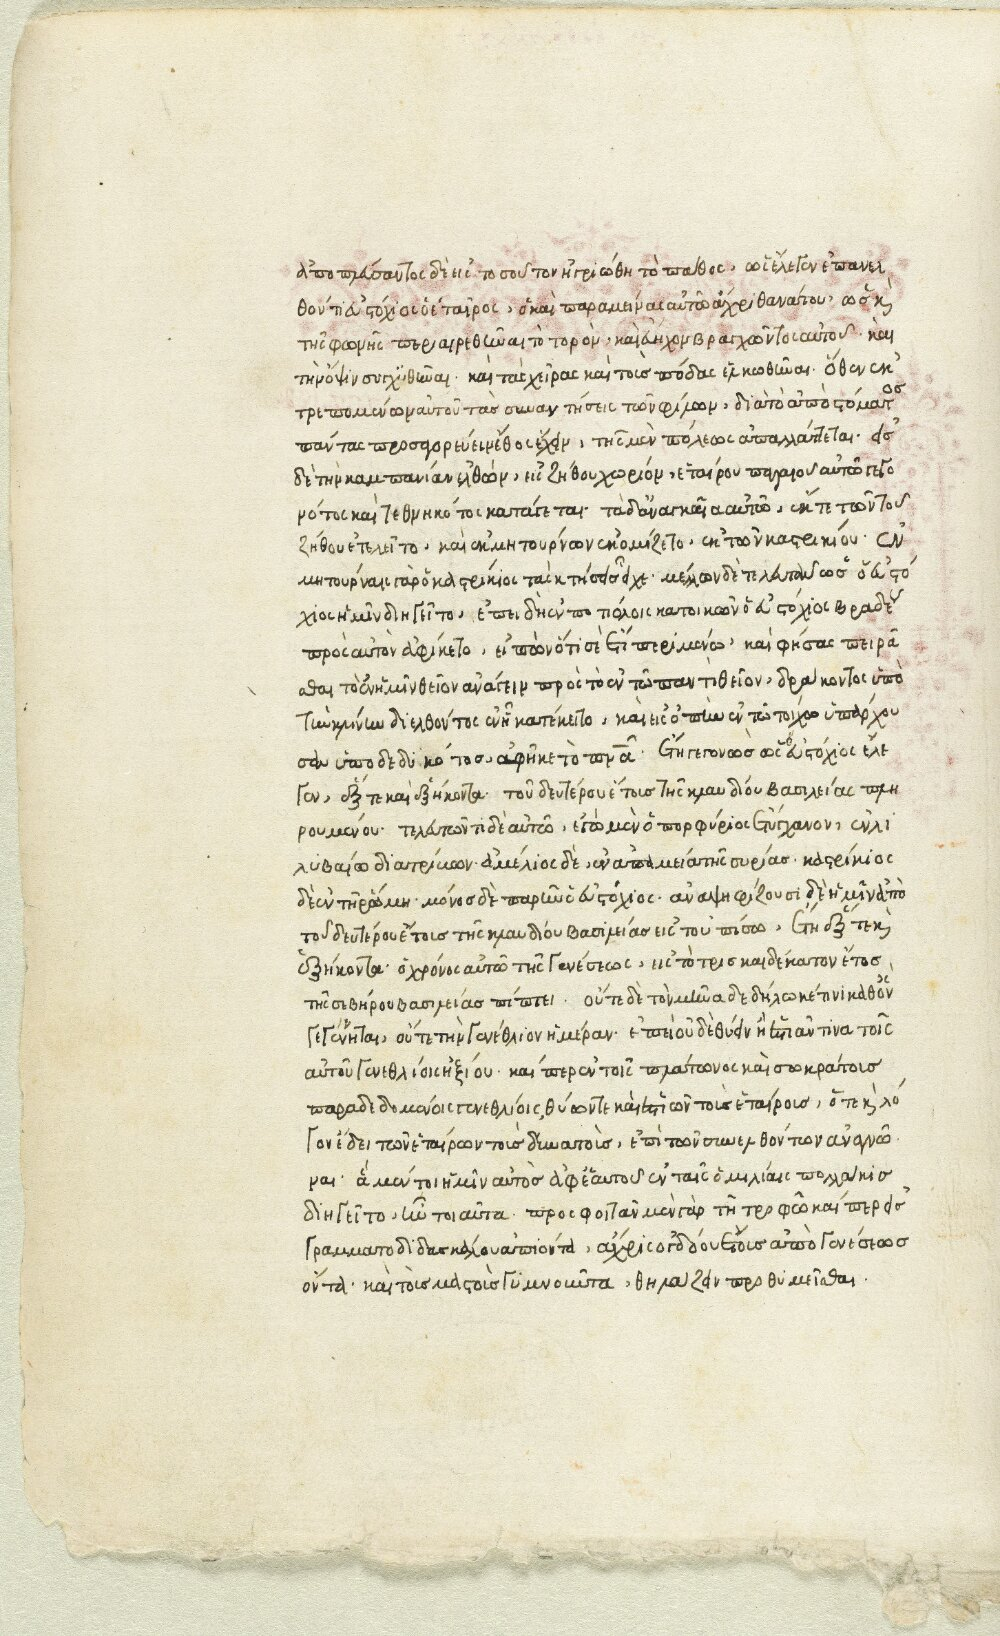 ἀποπλεύσαντος δὲ εἰς τοσοῦτον ἠγριώθη τὸ πάθος, ὡς ἔλεγεν ἐπανελ
θόντι εὐστόχιος ὁ ἑταῖρος, ὃ καὶ παραμεῖναι αὐτῷ ἄχρι θανάτου, ὡς κ
τῆς φωνῆς περιαιρεθῆναι τὸ τορὸν, καὶ εὔηχον βραγχῶντος αὐτοῦ· καὶ
τὴν ὄψιν συγχυθῆναι· καὶ τὰς χεῖρας καὶ τοὺς πόδας ἑλκωθῆναι· ὅθεν ἐκ
τρεπομένων αὐτοῦ τὰς συναντήσεις τῶν φίλων, διὰ τὸ ἀπὸ στόματος
πάντας προσαγορεύειν ἔθος ἔχειν, τῆς μὲν πόλεως ἀπαλλάττεται· εἰς
δὲ τὴν καμπανίαν ἐλθὼν, εἰς ζήθου χωρίον, ἑταίρου παλαιοῦ αὐτῷ γεγο
νότος καὶ τεθνηκότος κατάγεται· τὰ δ' ἀναγκαῖα αὐτῷ, ἔκ τε τῶν τοῦ
ζήθου ἐτελεῖτο, καὶ ἐκ μητουρνῶν ἐκομίζετο, ἐκ τῶν καστρικίου· ἐν
μητούρναις γὰρ ὁ καστρίκιος τὰς κτήσεις εἶχε· μέλλων δὲ τελευτᾶν ὡς ὁ εὐστό
χιος ἡμῖν διηγεῖτο, ἐπειδὴ ἐν ποτιόλοις κατοικῶν ὁ εὐστόχιος βραδέως
πρὸς αὐτὸν ἀφίκετο, εἰπὼν ὅτι σὲ ἔτι περιμένω, καὶ φήσας πειρᾶ
σθαι τὸ ἐν ἡμῖν θεῖον ἀνάγειν πρὸς τὸ ἐν τῷ παντὶ θεῖον, δράκοντος ὑπὸ
τὴν κλίνην διελθόντος ἐν ᾗ κατέκειτο, καὶ εἰς ὀπὴν ἐν τῷ τοίχῳ ὑπάρχου
σαν ὑποδεδυκότος, ἀφῆκε τὸ πνα· ἔτη γεγονὼς ὡς ὁ εὐστόχιος ἔλε
γεν, ἕξ τε καὶ ἑξήκοντα· τοῦ δευτέρου ἔτους τῆς κλαυδίου βασιλείας πλη
ρουμένου· τελευτῶντι δὲ αὐτῷ, ἐγὼ μὲν ὁ πορφύριος ἐτύγχανον, ἐν λι
λυβαίῳ διατρίβων· ἀμέλιος δὲ, ἐν ἀπαμείᾳ τῆς συρίας· καστρίκιος
δὲ ἐν τῇ ῥώμῃ· μόνος δὲ παρῆν ὁ εὐστόχιος· ἀναψηφίζουσι δὲ ἡμῖν ἀπὸ
τοῦ δευτέρου ἔτους τῆς κλαυδίου βασιλείας εἰς τοὐπίσω, ἔτη ἕξ τε κ
ἑξήκοντα· ὁ χρόνος αὐτῷ τῆς γενέσεως, εἰς τὸ τρισκαιδέκατον ἔτος
τῆς σεβήρου βασιλείας πίπτει· οὔτε δὲ τὸν μῆνα δεδήλωκέ τινι καθ' ὃν
γεγένηται, οὔτε τὴν γενέθλιον ἡμέραν· ἐπεὶ οὐδὲ θύειν ἢ ἑστιᾶν τινα τοῖς
αὐτοῦ γενεθλίοις ἠξίου· καίπερ ἐν τοῖς πλάτωνος καὶ σωκράτους
παραδεδομένοις γενεθλίοις, θύων τε καὶ ἑστιῶν τοὺς ἑταίρους, ὅτε κ λό
γον ἔδει τῶν ἑταίρων τοὺς δυνατοὺς, ἐπὶ τῶν συνελθόντων ἀναγνῶ
ναι· ἃ μέντοι ἡμῖν αὐτὸς ἀφ' ἑαυτοῦ ἐν ταῖς ὁμιλίαις πολλάκις
διηγεῖτο, ἦν τοιαῦτα· προσφοιτᾶν μὲν γὰρ τῇ τροφῷ καίπερ εἰς
γραμματοδιδασκάλου ἀπιόντα, ἄχρις ὀγδόου ἔτους ἀπὸ γενέσεως
ὄντα· καὶ τοὺς μαστοὺς γυμνοῦντα, θηλάζειν προθυμεῖσθαι·